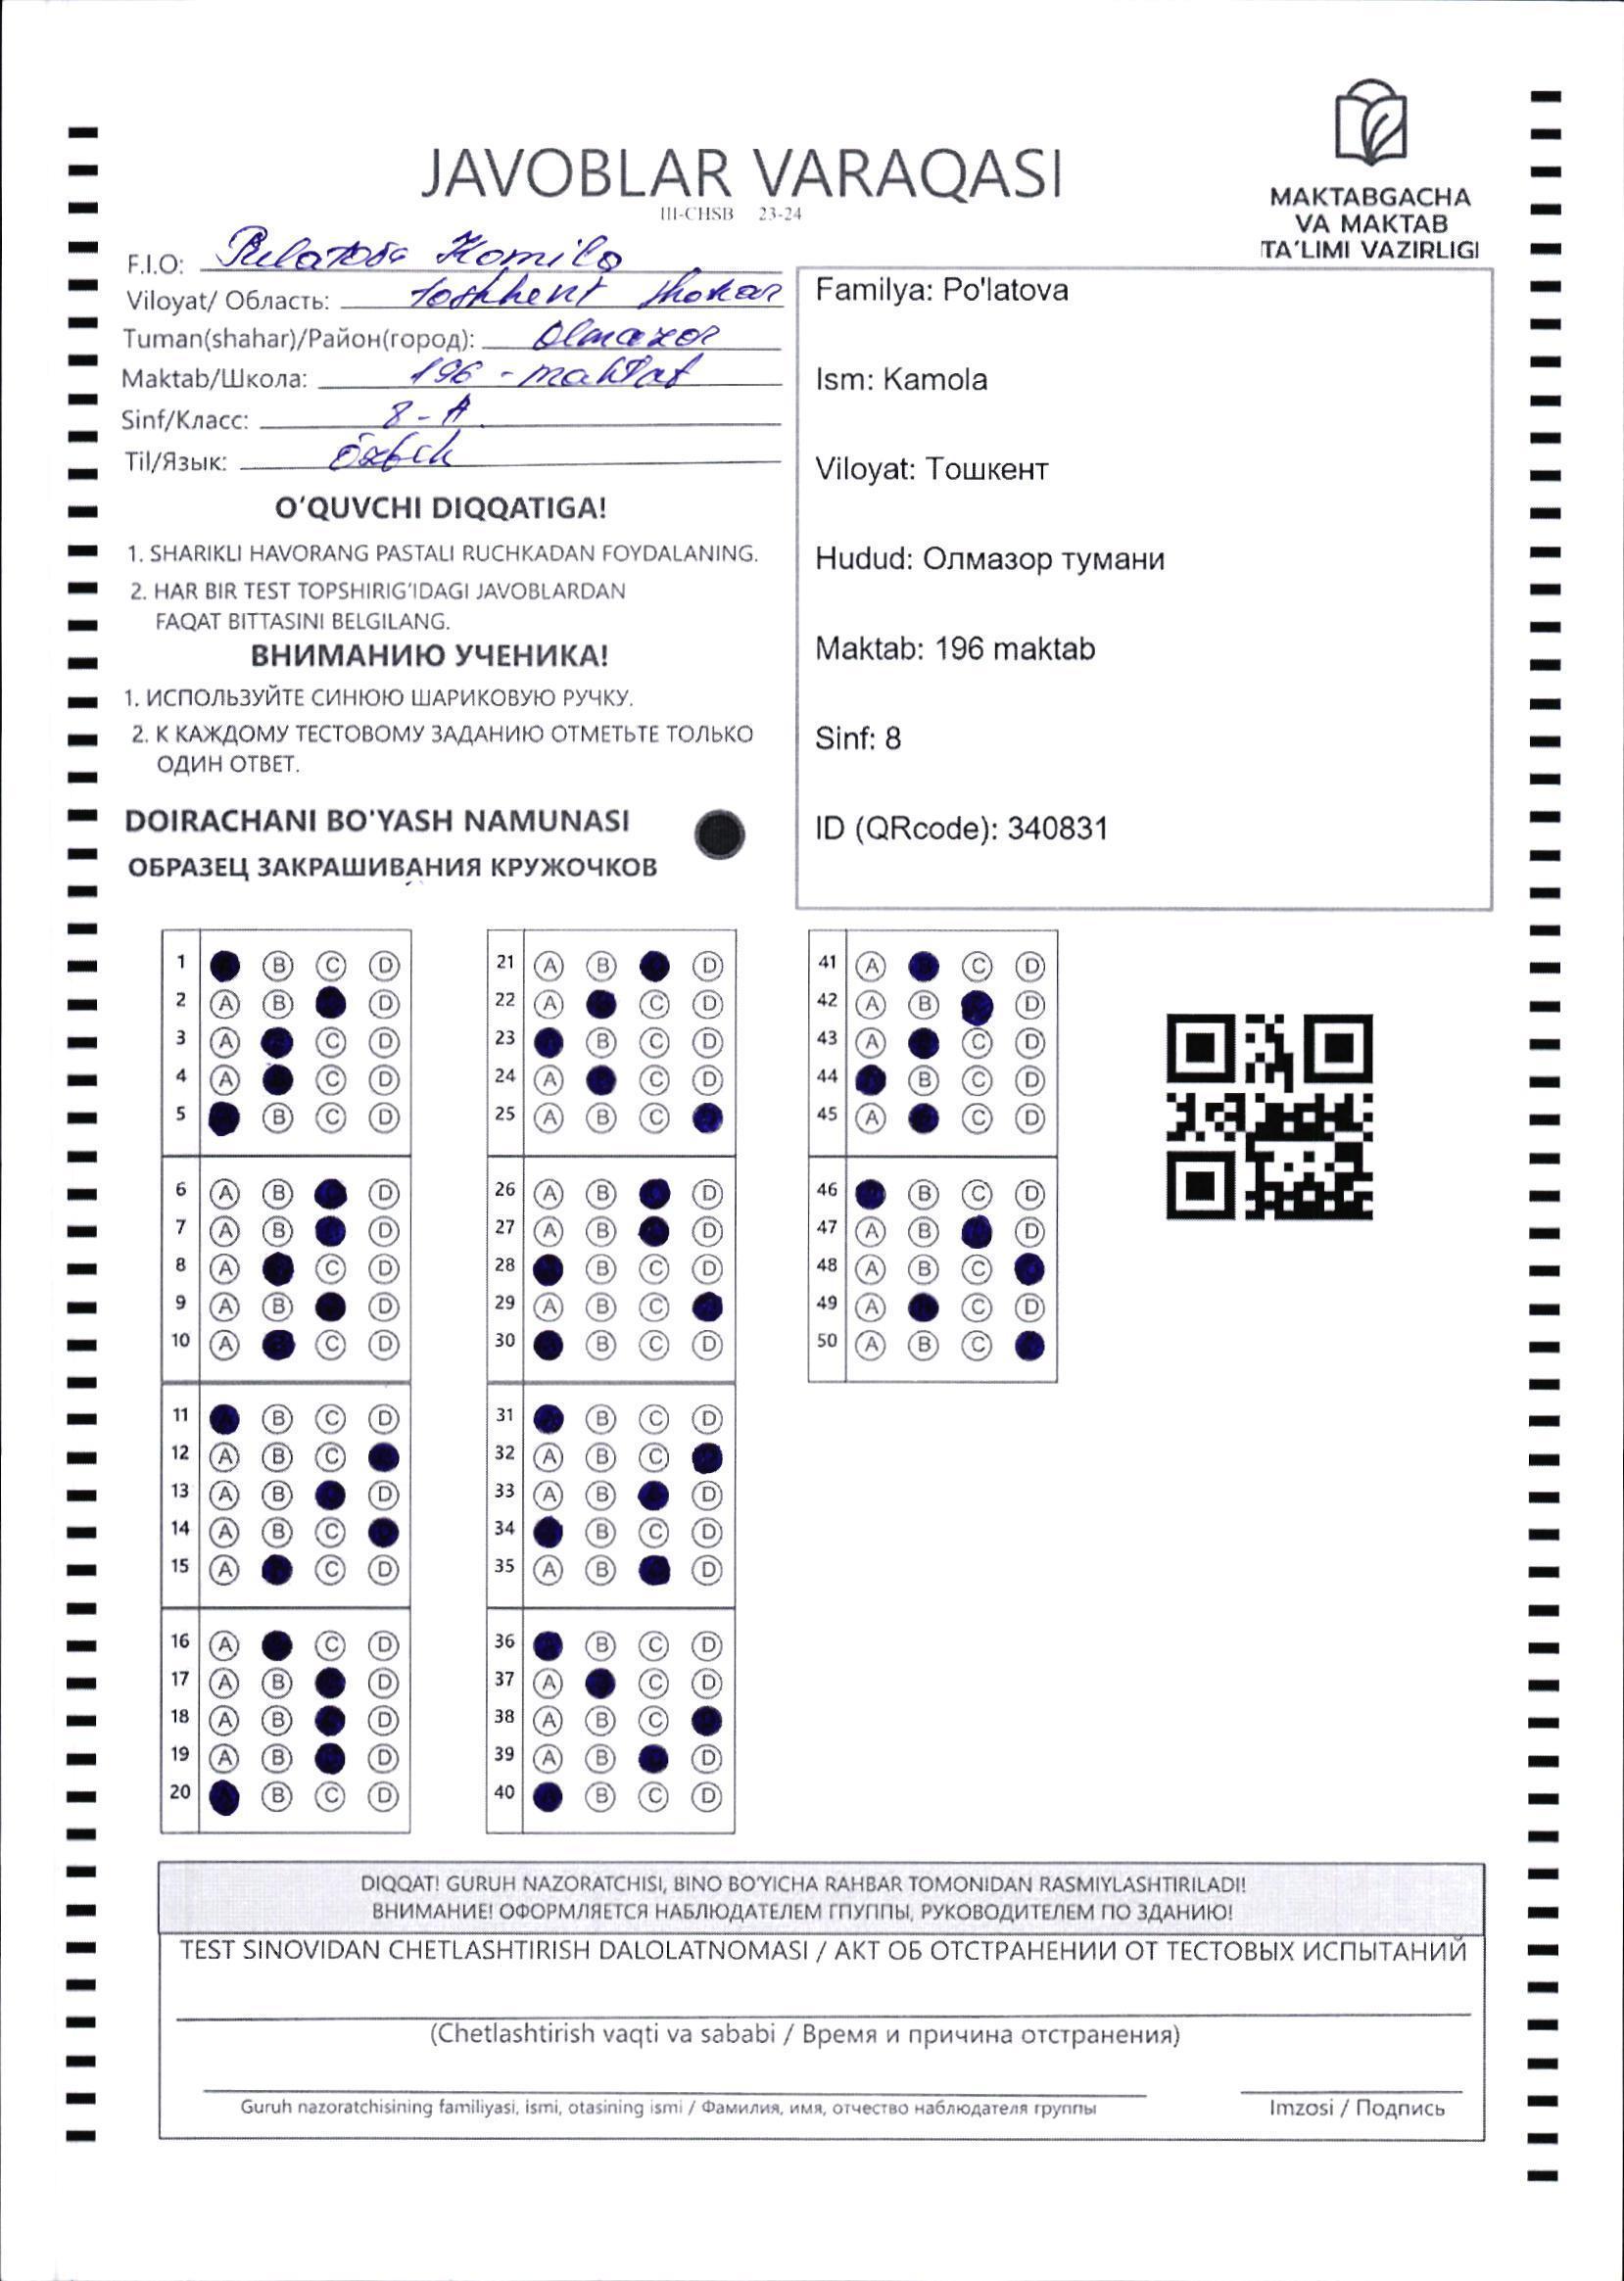 JAVOBLAR VARAQASI
III-CHSB 23-24
MAKTABGACHA
VA MAKTAB
TA'LIMI VAZIRLIGI
F.I.O:
Viloyat/ Область: Toshkent shahar
Tuman(shahar)/Район(город): Olmazor
Maktab/Школа: 196 - maktab
Sinf/Класс: 8 - A
Til/Язык: Özbek
O'QUVCHI DIQQATIGA!
1. SHARIKLI HAVORANG PASTALI RUCHKADAN FOYDALANING.
2. HAR BIR TEST TOPSHIRIG'IDAGI JAVOBLARDAN
FAQAT BITTASINI BELGILANG.
ВНИМАНИЮ УЧЕНИКА!
1. ИСПОЛЬЗУЙТЕ СИНЮЮ ШАРИКОВУЮ РУЧКУ.
2. К КАЖДОМУ ТЕСТОВОМУ ЗАДАНИЮ ОТМЕТЬТЕ ТОЛЬКО
ОДИН ОТВЕТ.
DOIRACHANI BO'YASH NAMUNASI
ОБРАЗЕЦ ЗАКРАШИВАНИЯ КРУЖОЧКОВ
Familya: Po'latova
Ism: Kamola
Viloyat: Тошкент
Hudud: Олмазор тумани
Maktab: 196 maktab
Sinf: 8
ID (QRcode): 340831
1 B C D
2 A B D
3 A C D
4 A C D
5 B C D
6 A B D
7 A B D
8 A C D
9 A B D
10 A C D
11 B C D
12 A B C
13 A B D
14 A B C
15 A C D
16 A C D
17 A B D
18 A B D
19 A B D
20 B C D
21 A B D
22 A C D
23 B C D
24 A C D
25 A B C
26 A B D
27 A B D
28 B C D
29 A B C
30 B C D
31 B C D
32 A B C
33 A B D
34 B C D
35 A B D
36 B C D
37 A C D
38 A B C
39 A B D
40 B C D
41 A C D
42 A B D
43 A C D
44 B C D
45 A C D
46 B C D
47 A B D
48 A B C
49 A C D
50 A B C
DIQQAT! GURUH NAZORATCHISI, BINO BO'YICHA RAHBAR TOMONIDAN RASMIYLASHTIRILADI!
ВНИМАНИЕ! ОФОРМЛЯЕТСЯ НАБЛЮДАТЕЛЕМ ГПУППЫ, РУКОВОДИТЕЛЕМ ПО ЗДАНИЮ!
TEST SINOVIDAN CHETLASHTIRISH DALOLATNOMASI / АКТ ОБ ОТСТРАНЕНИИ ОТ ТЕСТОВЫХ ИСПЫТАНИЙ
(Chetlashtirish vaqti va sababi / Время и причина отстранения)
Guruh nazoratchisining familiyasi, ismi, otasining ismi / Фамилия, имя, отчество наблюдателя группы
Imzosi / Подпись